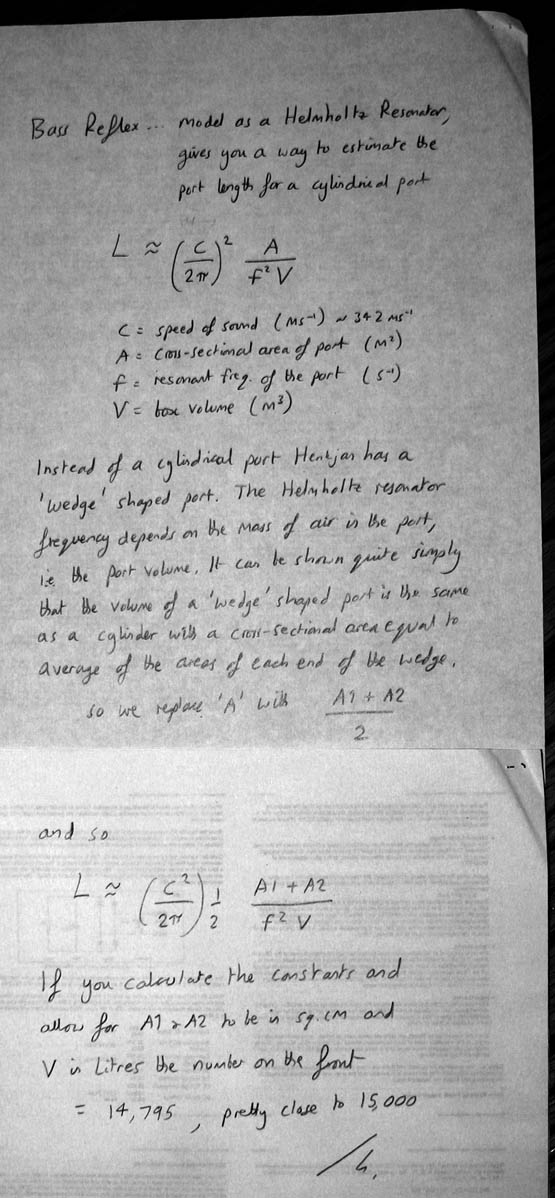 Bass Reflex ... model as a Helmholtz Resonator,
gives you a way to estimate the
port length for a cylindrical port
L ≈ (C/2π)² A/f²V
C = speed of sound (ms⁻¹) ~ 342 ms⁻¹
A = cross-sectional area of port (m²)
f = resonant freq. of the port (s⁻¹)
V = box volume (m³)
Instead of a cylindrical port Hentjan has a
'wedge' shaped port. The Helmholtz resonator
frequency depends on the mass of air in the port,
i.e the port volume. It can be shown quite simply
that the volume of a 'wedge' shaped port is the same
as a cylinder with a cross-sectional area equal to
average of the areas of each end of the wedge.
so we replace 'A' with A1 + A2 / 2
and so
L ≈ (C²/2π) 1/2 A1 + A2 / f² V
If you calculate the constants and
allow for A1 & A2 to be in sq.cm and
V in Litres the number on the front
= 14,795, pretty close to 15,000